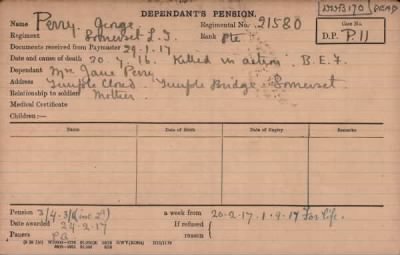 DEPENDANT'S PENSION.
DEAD
Name Perry, George. Regimental No. 21580
Case No.
Regiment Somerset L.I. Rank Pte
D.P. P.11
Documents received from Paymaster 29.1.17
Date and cause of death 20.7.16. Killed in action. B.E.F.
Dependant Mrs Jane Perry
Address Temple Cloud. Temple Bridge. Somerset.
Relationship to soldier Mother
Medical Certificate
Children:—
Name. Date of Birth. Date of Expiry. Reason.
Pension 3/4 - 3/6 a week from 20-2-17. 1.9.17 For Life.
Date awarded 24-2-17 If refused
Papers reason